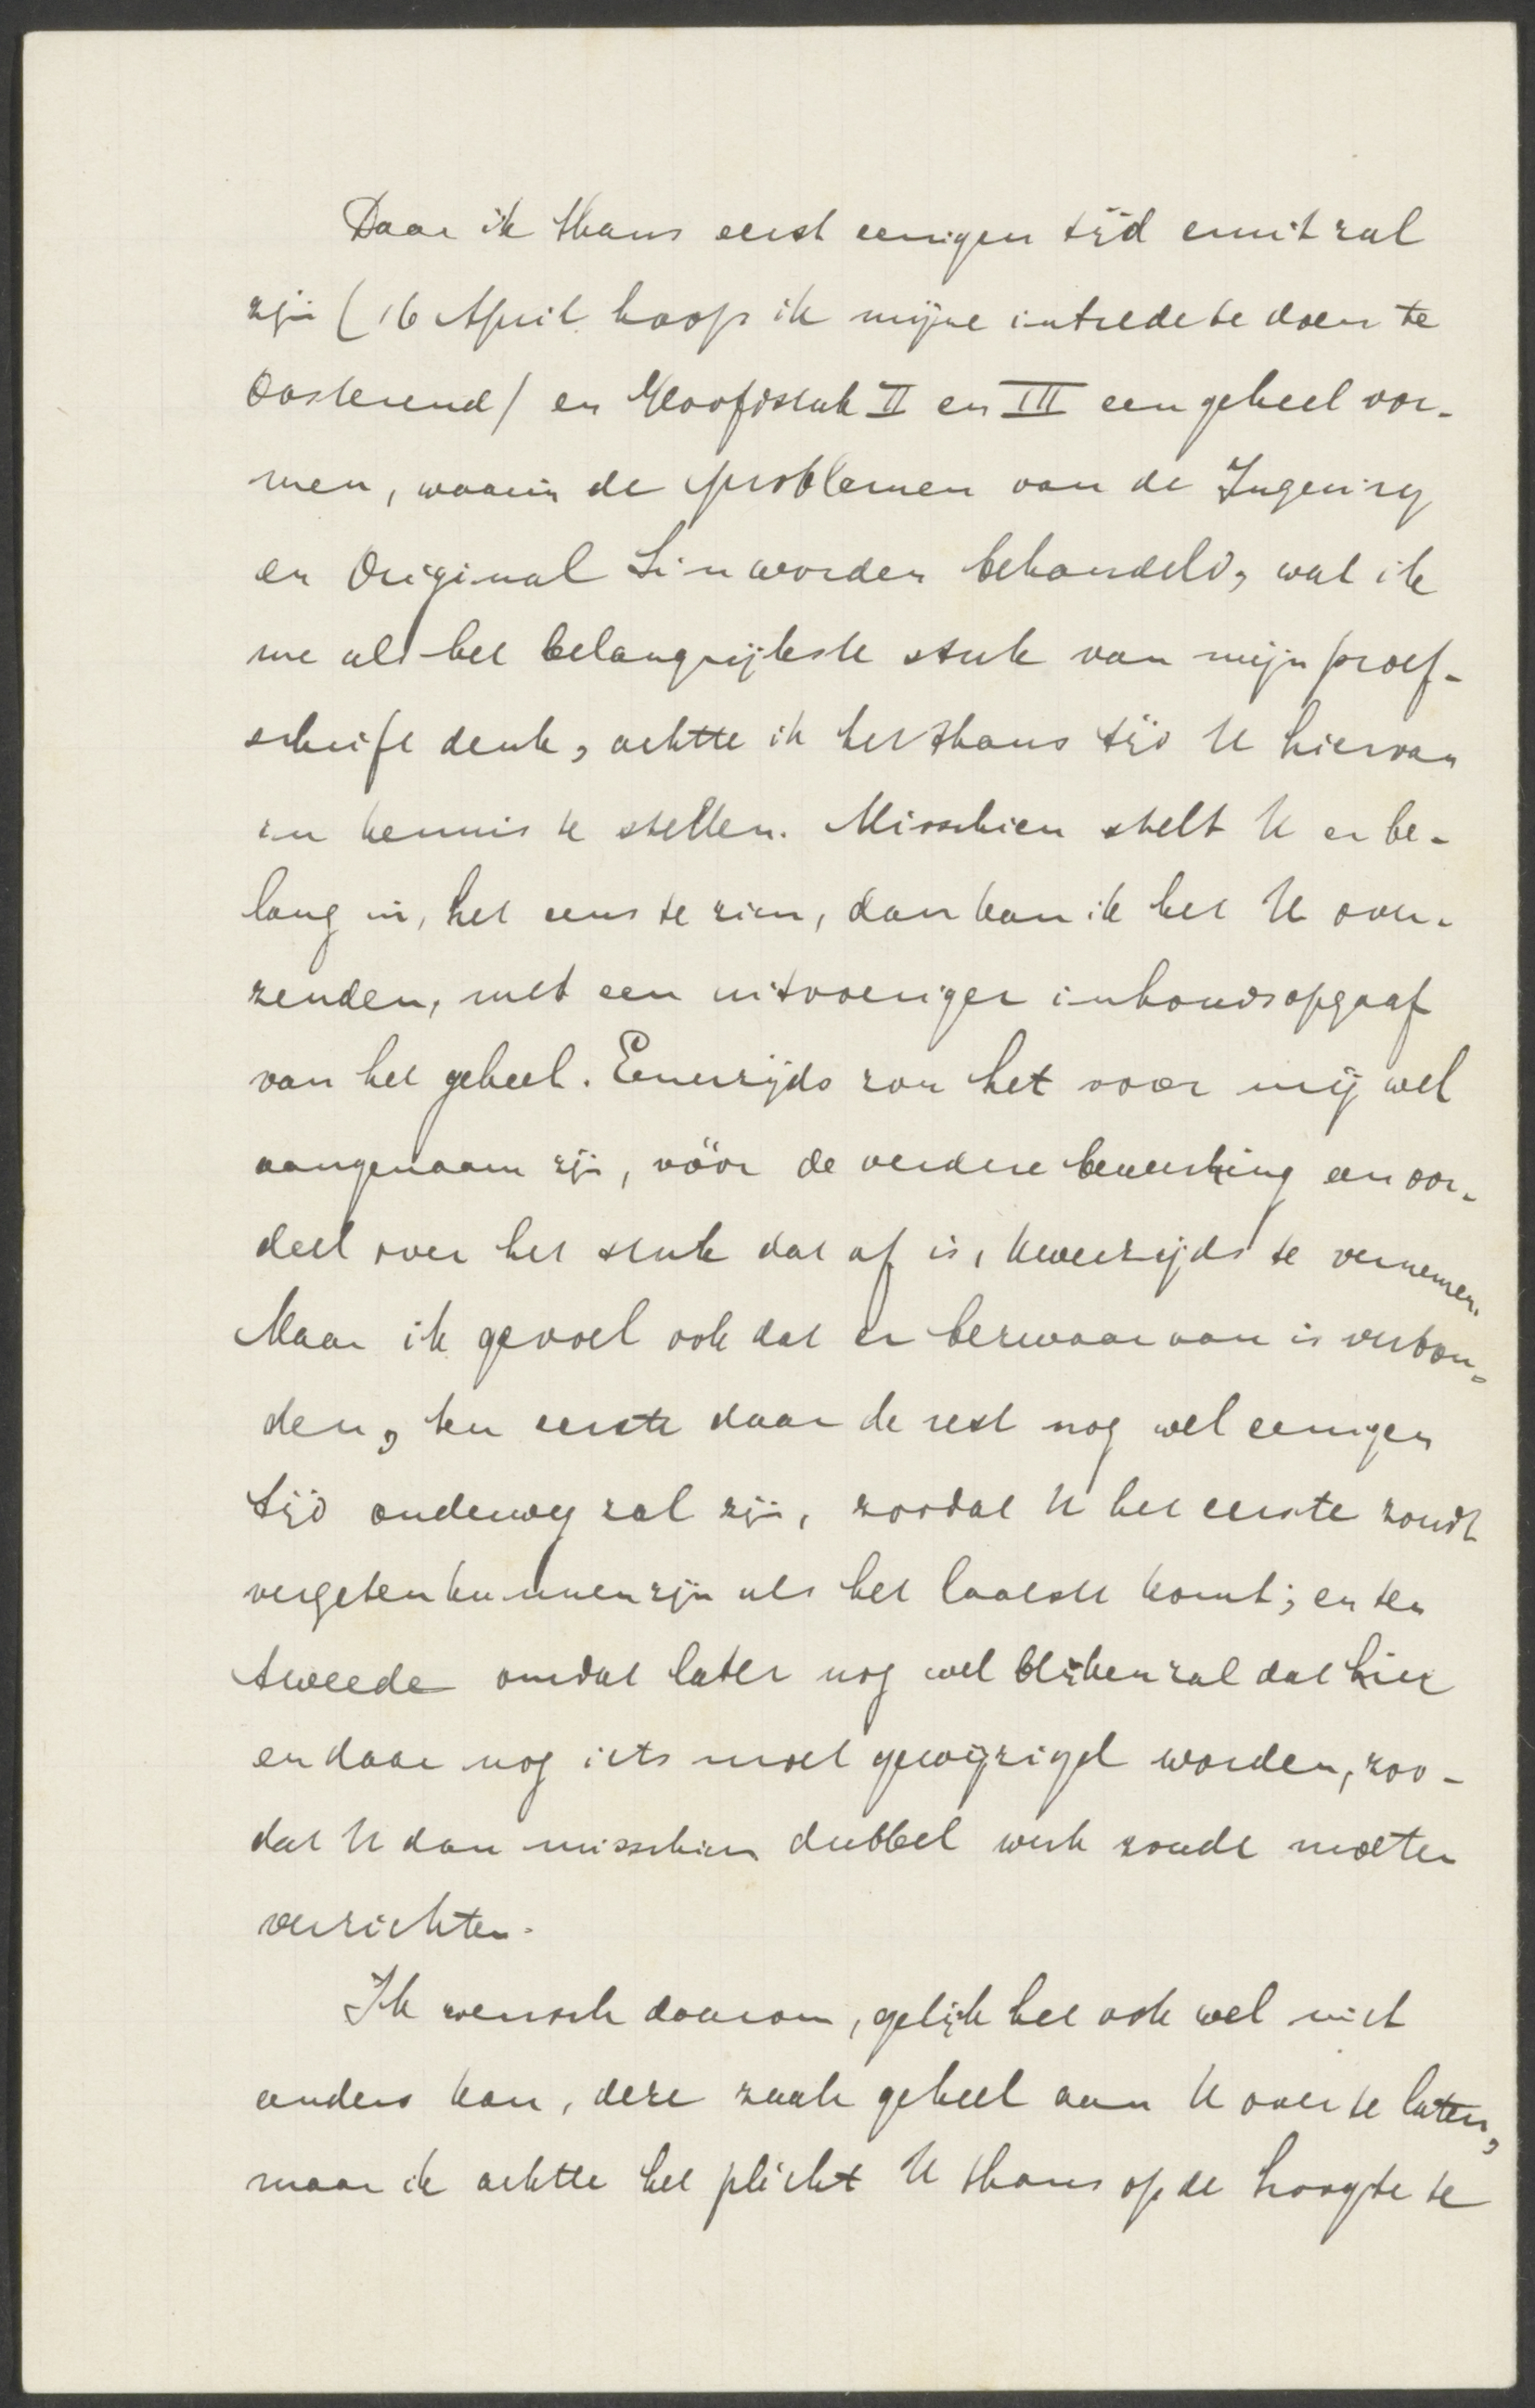 Daar ik thans eerst eenigen tijd eruit zal
zijn (16 April hoop ik mijne intrede te doen te
Oosterend) en Hoofdstuk II en III een geheel vor-
men, waarin de problemen van de
en Original Sin worden behandeld, wat ik
me als het belangrijkste stuk van mijn proef-
schrift denk, achtte ik het thans tijd U hiervan
in kennis te stellen. Misschien stelt U er be-
lang in, het eens te zien, dan kan ik het U over-
zenden, met een uitvoeriger inhoudsopgaaf
van het geheel. Eenerzijds zou het voor mij wel
aangenaam zijn, vóór de verdere bewerking een oor-
deel over het stuk dat af is, Uwerzijds te vernemen.
Maar ik gevoel ook dat er bezwaar aan is verbon-
den, ten eerste daar de rest nog wel eenigen
tijd onderweg zal zijn, zoodat U het eerste zoudt
vergeten kunnen zijn als het laatste komt; en ten
tweede omdat later nog wel blijken zal dat hier
en daar nog iets moet gewijzigd worden, zoo-
dat U dan misschien dubbel werk zoude moeten
verrichten.
Ik wensch daarom, gelijk het ook wel niet
anders kan, deze zaak geheel aan U over te laten,
maar ik achtte het plicht U thans op de hoogte te